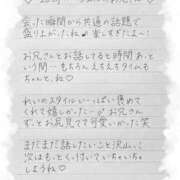 会った瞬間から共通の話題で
盛り上がったね 楽しすぎたよ〜!
お兄さんとお話してると時間あっ
という間… もちろんえちえちタイムも
ちゃんと、ね♡
れいのスタイルいーっぱい褒めて
くれて嬉しかった… お兄さん
ずーっとお兄見てて可愛いかった笑
まだまだ話したいこと沢山…♪
次はもっとくっ付いていちゃいちゃ
しようね♡